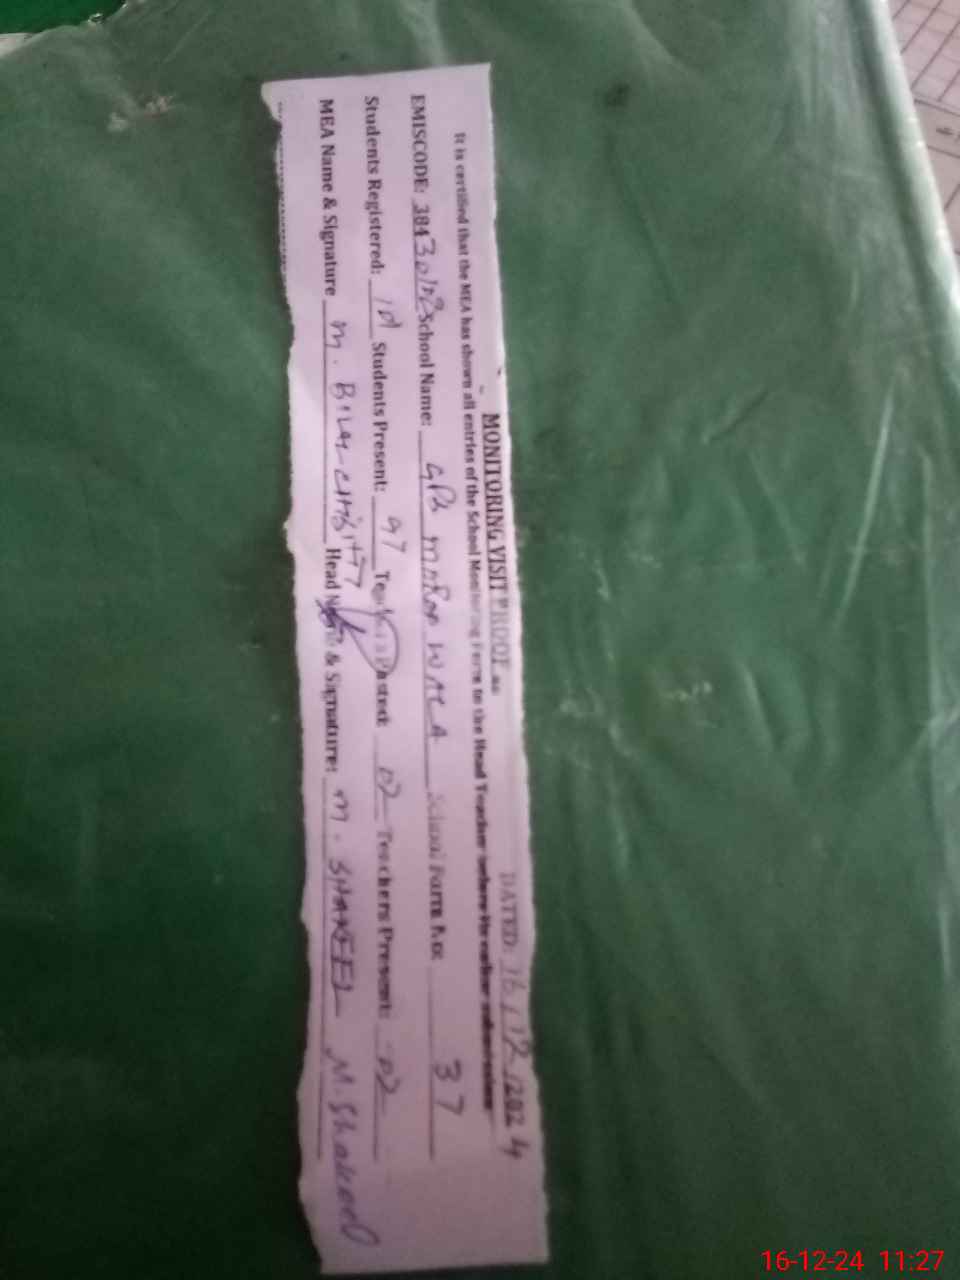 MONITORING VISIT PROOF
DATED: 16/12/2024
It is certified that the MEA has shown all entries of the School Monitoring Form to the Head Teacher before its online submission
EMISCODE: 38430102 School Name: GPS MAROR WALA School Form No: 37
Students Registered: Students Present: 97 Teachers Posted: 02 Teachers Present: 02
MEA Name & Signature M. BILAL CHISHTI Head Name & Signature: M. SHAKEEL M. Shakeel
16-12-24 11:27